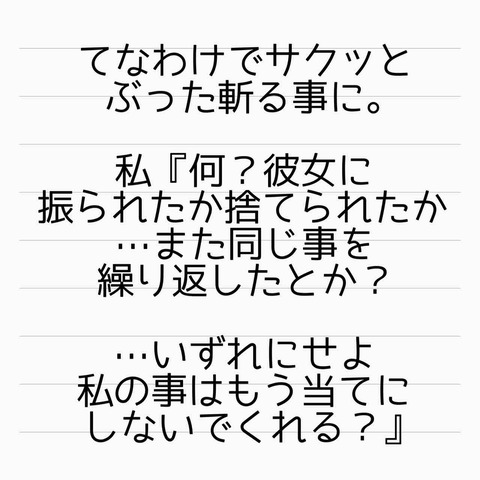 てなわけでサクッと
ぶった斬る事に。
私『何？彼女に
振られたか捨てられたか
…また同じ事を
繰り返したとか？
…いずれにせよ
私の事はもう当てに
しないでくれる？』